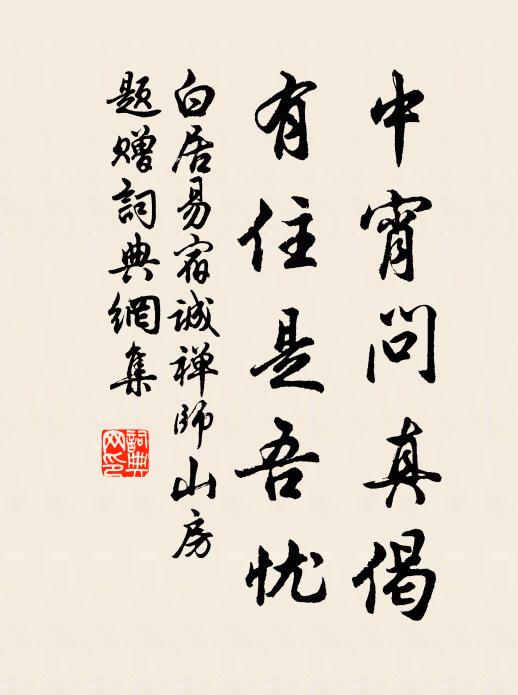 中宵问真偈
有住是吾忧
白居易宿诚禅师山房
题赠詞典網集
詞典网印